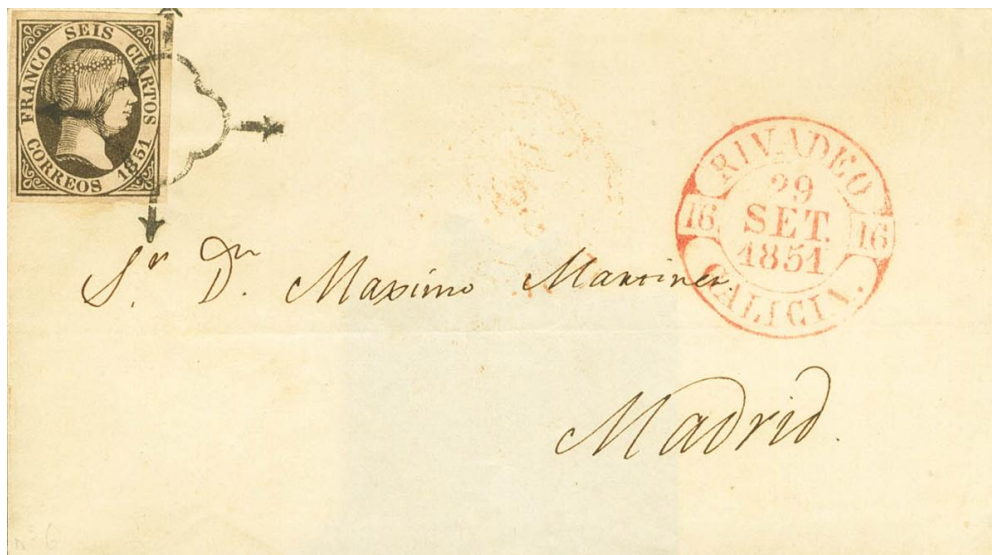 FRANCO SEIS CUARTOS
CORREOS 1851
RIVADEO
29
SET.
1851
16 16
GALICIA.
Sr. Dn. Maximo Martinez.
Madrid.
Nº 6